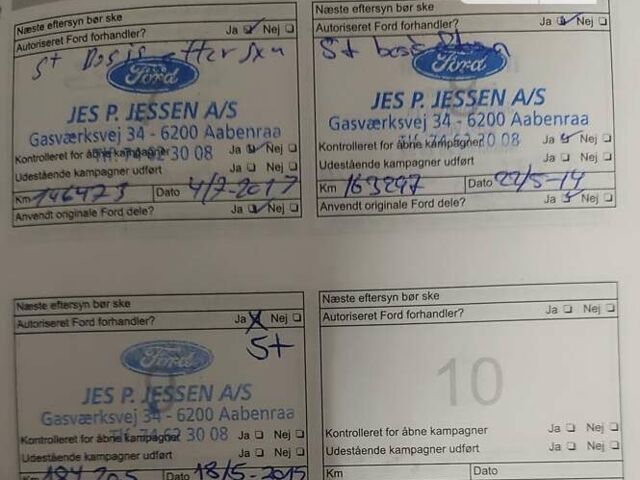 Næste eftersyn bør ske
Autoriseret Ford forhandler? Ja Nej
St Basis eftersyn
Ford
JES P. JESSEN A/S
Gasværksvej 34 - 6200 Aabenraa
Tlf. 74 62 30 08
Kontrolleret for åbne kampagner Ja Nej
Udestående kampagner udført Ja Nej
Km 146473 Dato 4/7-2017
Anvendt originale Ford dele? Ja Nej
Næste eftersyn bør ske
Autoriseret Ford forhandler? Ja Nej
St
Ford
JES P. JESSEN A/S
Gasværksvej 34 - 6200 Aabenraa
Tlf. 74 62 30 08
Kontrolleret for åbne kampagner Ja Nej
Udestående kampagner udført Ja Nej
Km 163297 Dato 22/5-14
Anvendt originale Ford dele? Ja Nej
Næste eftersyn bør ske
Autoriseret Ford forhandler? Ja Nej
St
Ford
JES P. JESSEN A/S
Gasværksvej 34 - 6200 Aabenraa
Tlf. 74 62 30 08
Kontrolleret for åbne kampagner Ja Nej
Udestående kampagner udført Ja Nej
Km 184205 Dato 18/5-2015
Næste eftersyn bør ske
Autoriseret Ford forhandler? Ja Nej
10
Kontrolleret for åbne kampagner Ja Nej
Udestående kampagner udført Ja Nej
Km Dato